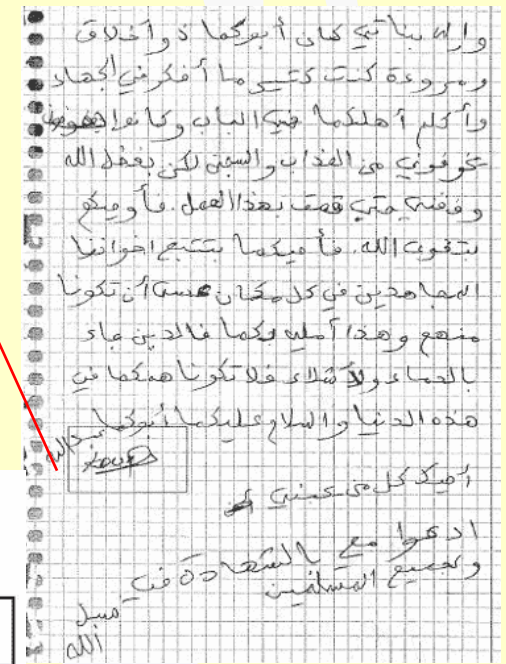 والله بناتي كان أبوكما ذو أخلاق
ومروءة كنت كثير ما أفكر في الجهاد
وأكلم أهلكما في الباب وكانوا
يخوفوني من العذاب والسجن لكن بفضل الله
وفقني حتى قمت بهذا العمل. فأوصيكم
بتقوى الله. فأصيكما بتتبع اخواننا
المجاهدين في كل مكان عسى أن تكونا
منهم وهذا أمليه بكما فالدين جاء
بالدماء والأشلاء فلا تكونا همكما في
هذه الدنيا والسلام عليكما أبوكما
عبد الله
أصيك كل من يحبني
ادعوا مع بالشهادة في
سبيل
الله
ولجميع المسلمين